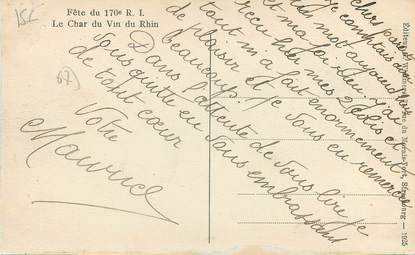 15€
Fête du 170e R. I.
Le Char du Vin du Rhin
67)
chers parents
je comptais
mot aujourd'hui
et ma foi oui. J'ai
reçu hier mes 2 colis et
tout m'a fait énormément
de plaisir et je vous en remercie
beaucoup.
Dans l'attente de vous lire je
vous quitte en vous embrassant
de tout cœur
Votre
Maurice
Strasbourg - 1925